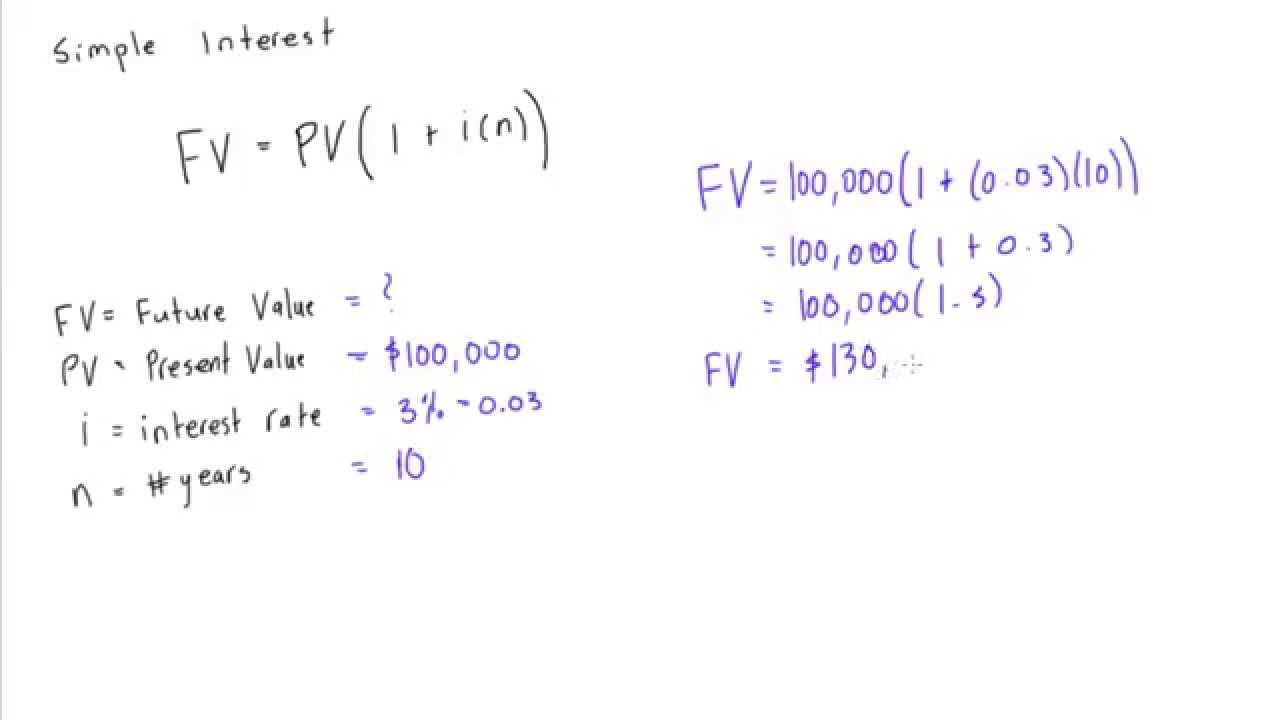 Simple Interest
FV = PV(1 + i(n))
FV = Future Value = ?
PV = Present Value = $100,000
i = interest rate = 3% = 0.03
n = # years = 10
FV = 100,000(1 + (0.03)(10))
= 100,000(1 + 0.3)
= 100,000(1.3)
FV = $130,